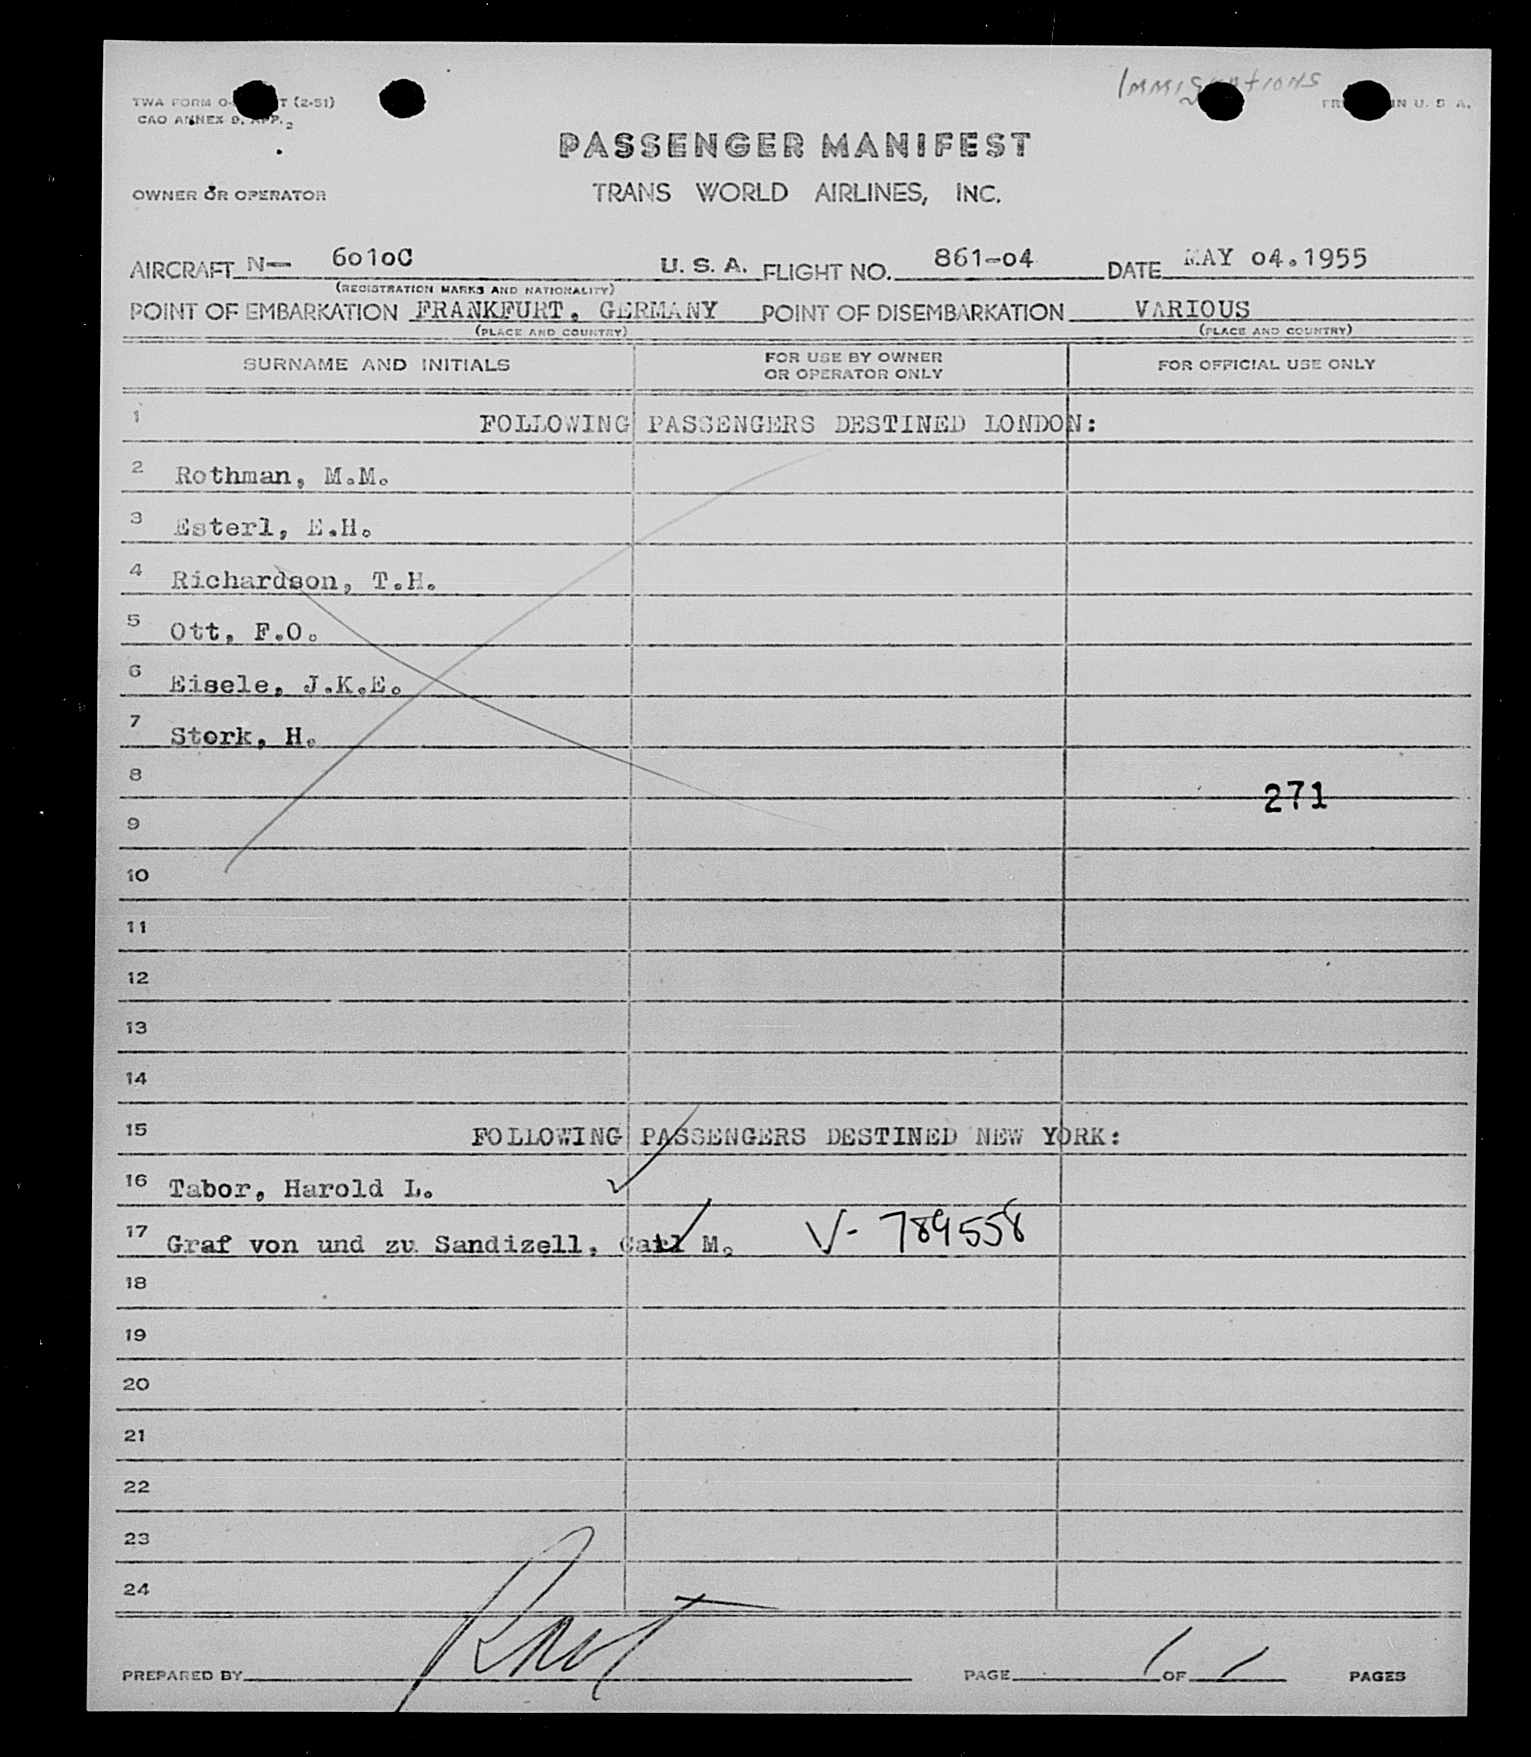 Immigrations
TWA FORM O- T (2-51)
CAO ANNEX 9, APP. 2
IN U. S. A.
PASSENGER MANIFEST
OWNER OR OPERATOR TRANS WORLD AIRLINES, INC.
AIRCRAFT N— 6010C U. S. A. FLIGHT NO. 861-04 DATE MAY 04.1955
(REGISTRATION MARKS AND NATIONALITY)
POINT OF EMBARKATION FRANKFURT, GERMANY POINT OF DISEMBARKATION VARIOUS
(PLACE AND COUNTRY) (PLACE AND COUNTRY)
SURNAME AND INITIALS FOR USE BY OWNER OR OPERATOR ONLY FOR OFFICIAL USE ONLY
1 FOLLOWING PASSENGERS DESTINED LONDON:
2 Rothman, M.M.
3 Esterl, E.H.
4 Richardson, T.H.
5 Ott, F.O.
6 Eisele, J.K.E.
7 Stork, H.
8
271
9
10
11
12
13
14
15 FOLLOWING PASSENGERS DESTINED NEW YORK:
16 Tabor, Harold L.
17 Graf von und zu Sandizell, Carl M. V- 789558
18
19
20
21
22
23
24
PREPARED BY PAGE 1 OF 1 PAGES